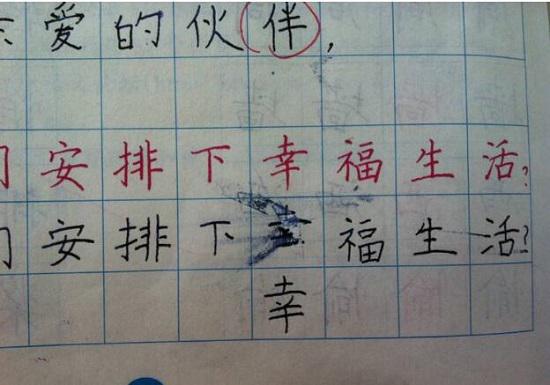 爱的伙伴,
安排下幸福生活?
安排下福生活?
幸